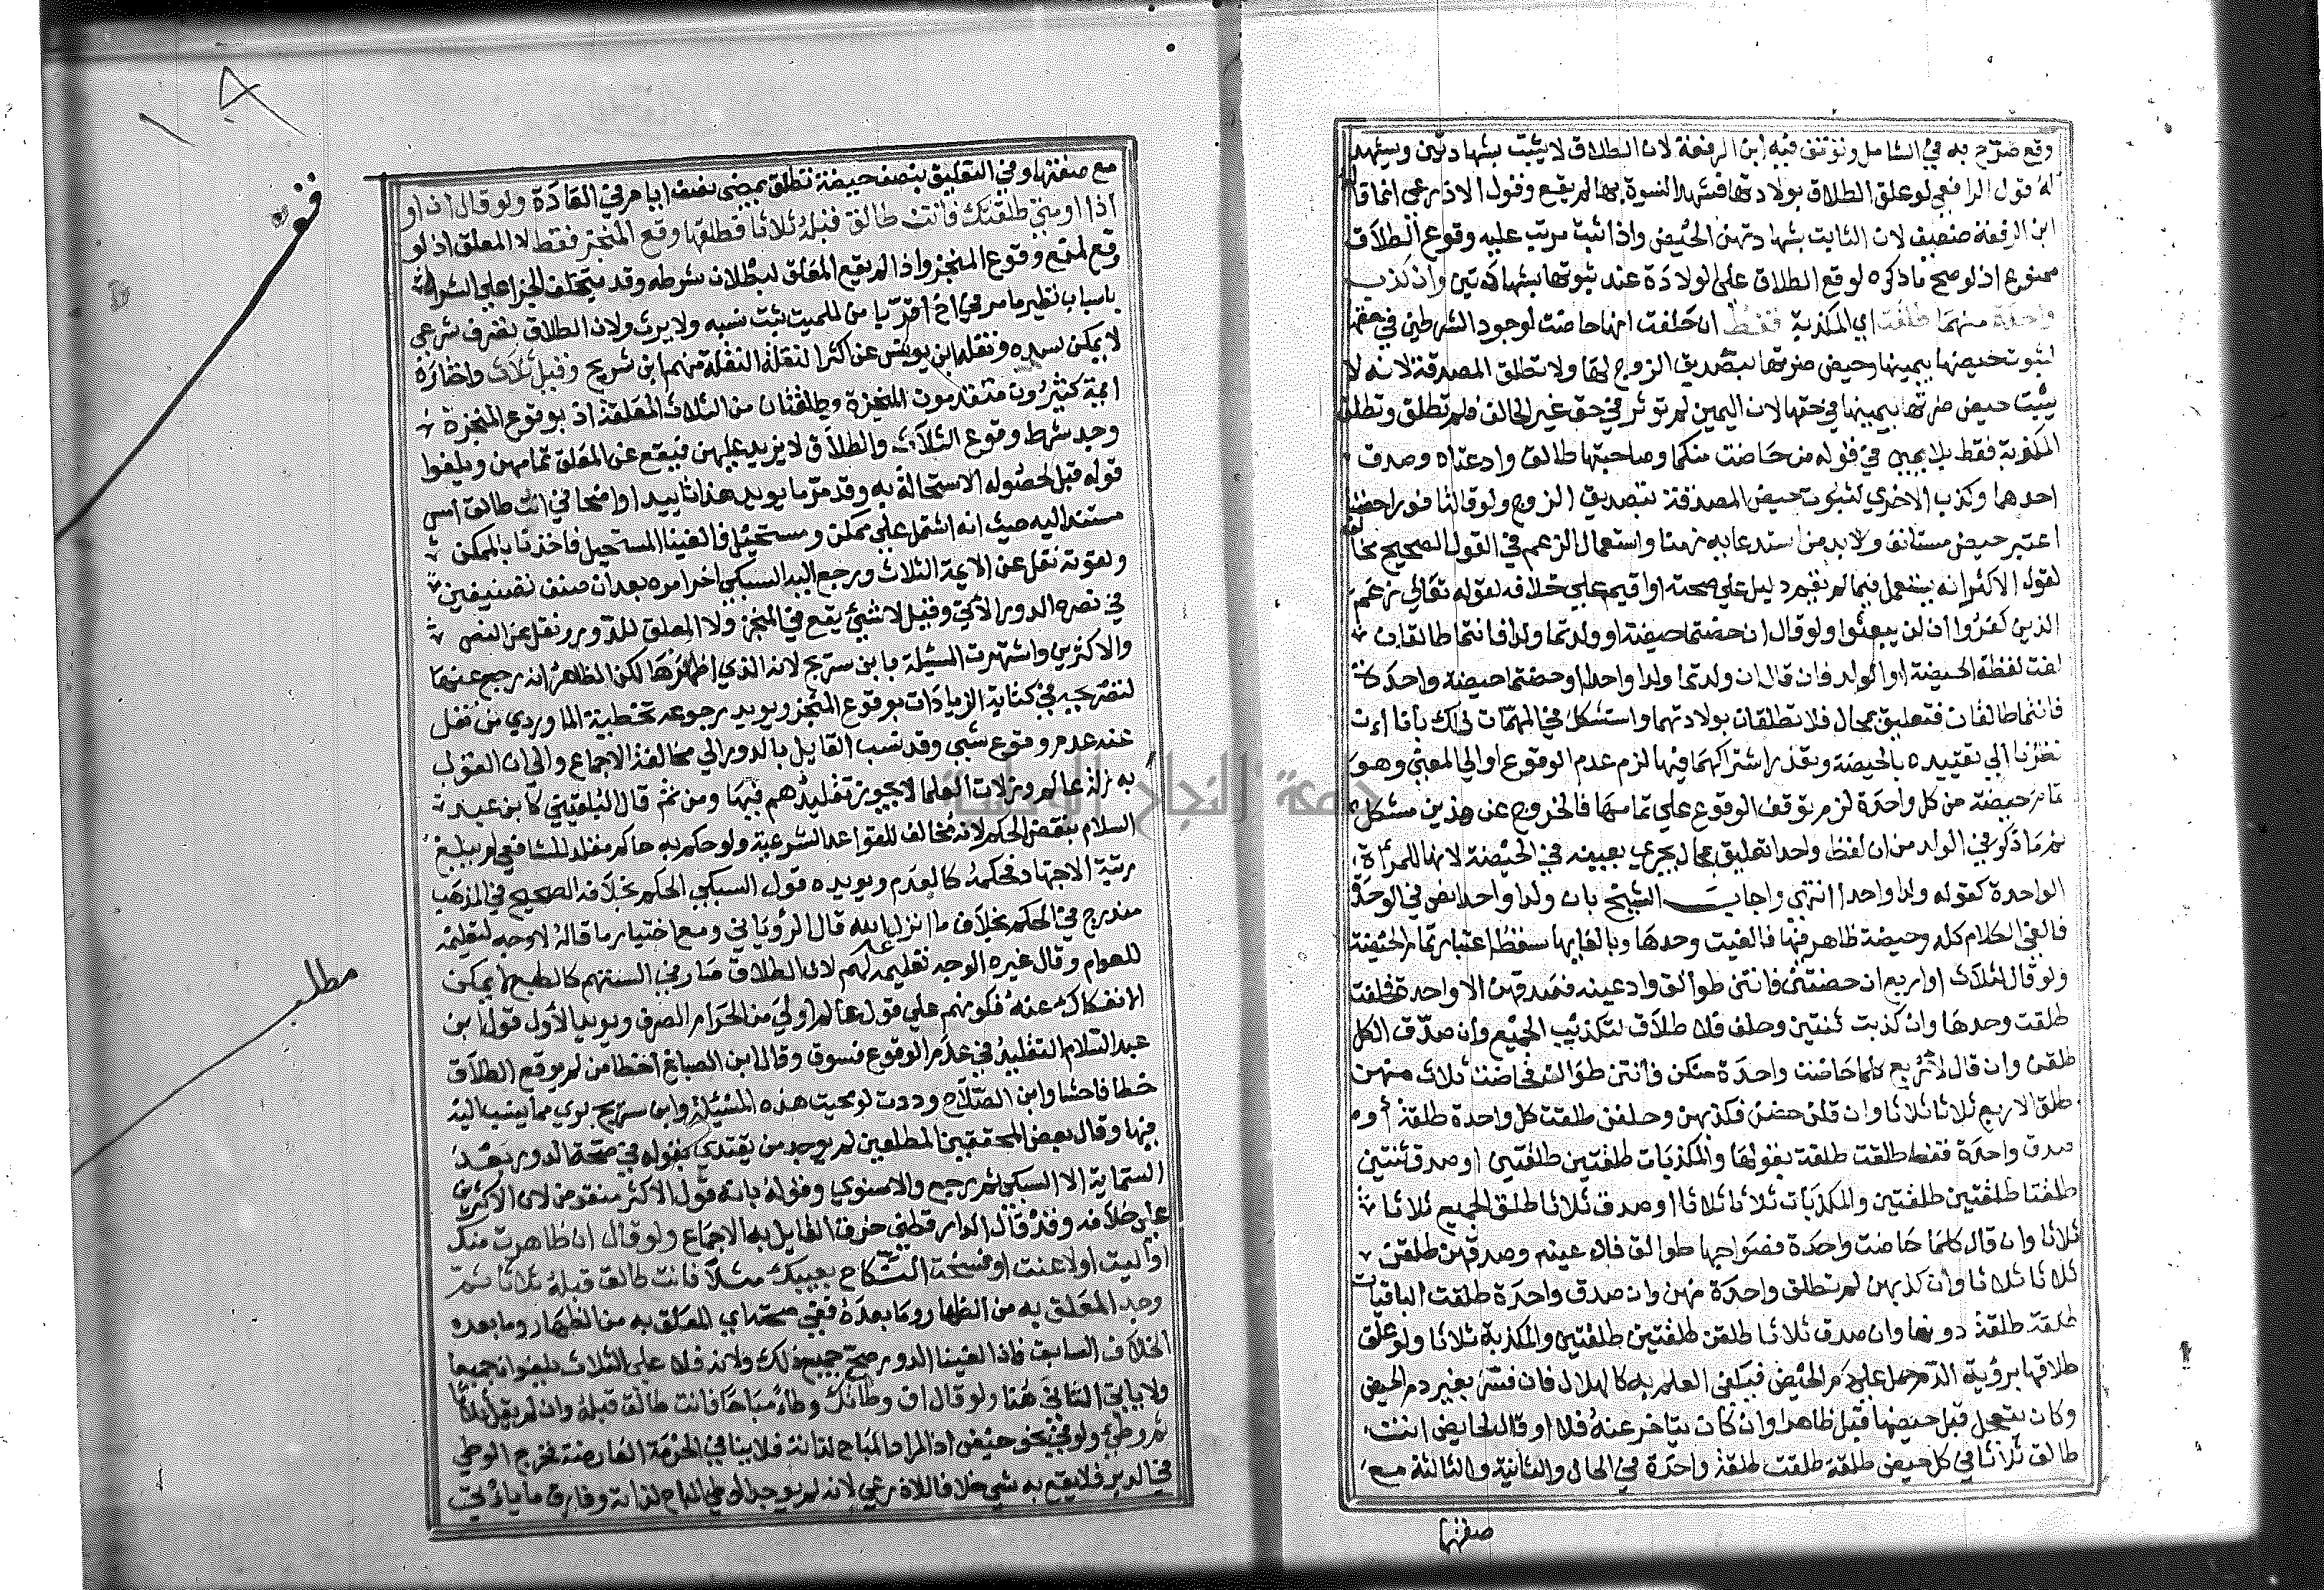 وقع صرح به في الشامل وتوقف فيه ابن الرفعة لان الطلاق لا يثبت بشهادتهن ويشهد
له قول الرافعي لو علق الطلاق بولادتها فشهد النسوة بها لم يقع وقول الاذرعي انما قاله
ابن الرفعة ضعيف لان الثابت بشهادتهن الحيض واذا ثبت ترتب عليه وقوع الطلاق
ممنوع اذ لو صح ما ذكره لوقع الطلاق على الولادة عند ثبوتها بشهادتين وان كذب
واحدة منهما طلقت اي المكذبة فقط ان حلفت انها حاضت لوجود الشرطين في حقها
لثبوت حيضها بيمينها وحيض ضرتها بتصديق الزوج لها ولا تطلق المصدقة لانه لا
يثبت حيض ضرتها بيمينها في حقها لان اليمين لم توثر في حق غير الحالف فلم تطلق وتطلق
المكذبة فقط بلا يمين في قوله من حاضت منكما وصاحبتها طالق وادعتاه وصدق
احدهما وكذب الاخري لثبوت حيض المصدقة بتصديق الزوج ولو قالتا فورا حضنا
اعتبر حيض مستانف ولا بد من استدعايه زمنا واستعمال الزعم في القول الصحيح مخالف
لقول الاكثر انه يستعمل فيما لم يقم دليل على صحته او اقيم علي خلافه لقوله تعالي زعم
الذين كفروا ان لن يبعثوا ولو قال ان حضتما حيضة او ولدتما ولدا فانتما طالقان
لغت لفظة الحيضة او الولد فان قال ان ولدتما ولدا واحدا او حضتما حيضة واحدة
فانتما طالقان فتعليق بمحال فلا تطلقان بولادتهما واستشكل في المهمات ذلك بانا ان
نظرنا الي تقييده بالحيضة وتعذر اشتراكهما فيها لزم عدم الوقوع او الي المعنى وهو
تمام حيضة من كل واحدة لزم توقف الوقوع علي تمامها فالخروج عن هذين مشكل
ثم ما ذكر في الولد من ان لفظ واحد تعليق بمحال يجري بعينه في الحيضة لانها للمرأة
الواحدة كقوله ولدا واحدا انتهى واجاب الشيخ بان ولدا واحدا نص في الوحدة
فالغي الكلام كله وحيضة ظاهر فيها فالغيت وحدها وبالغايها سقط اعتبار تمام الحيضة
ولو قال لثلاث او اربع ان حضتن فانتن طوالق وادعينه فصدقهن الا واحدة فحلفت
طلقت وحدها وان كذبت ثنتين وحلف فلا طلاق لتكذيب الجميع وان صدق الكل
طلقن وان قال لاربع كلما حاضت واحدة منكن فانتن طوالق فحاضت ثلاث منهن
طلق الاربع ثلاثا ثلاثا وان قلن حضن فكذبهن وحلفن طلقت كل واحدة طلقة او
صدق واحدة فقط طلقت طلقة بقولها والمكذبات طلقتين طلقتين او صدق ثنتين
طلقتا طلقتين طلقتين والمكذبات ثلاثا ثلاثا او صدق ثلاثا طلق الجميع ثلاثا
ثلاثا وان قال كلما حاضت واحدة فصواحبها طوالق فادعينه وصدقهن طلقن
ثلاثا ثلاثا وان كذبهن لم تطلق واحدة منهن وان صدق واحدة طلقت الباقيات
طلقة طلقة دونها وان صدق ثلاثا طلقن طلقتين طلقتين والمكذبة ثلاثا ولو علق
طلاقها برؤية الدم حمل على دم الحيض فيكفي العلم به كالهلال فان فسر بغير دم الحيض
وكان يتعجل قبل حيضها قبل ظاهرا وان كان يتاخر عنه فلا او قال لحايض انت
طالق ثلاثا في كل حيض طلقة طلقت طلقة واحدة في الحال والثانية والثالثة مع
صفتها
مع صفتها وفي التعليق بنصف حيضة تطلق بمضي نصف ايامر في العادة ولو قال اذ او
اذا او متى طلقتك فانت طالق قبله ثلاثا فطلقها وقع المنجز فقط لا المعلق اذ لو
وقع لمنع وقوع المنجز واذا لم يقع المعلق لبطلان شرطه وقد يتخلف الجزا علي الشرط
باسباب نظير ما مر في اخ اقر بابن للميت ثبت نسبه ولا يرث ولان الطلاق تصرف شرعي
لا يمكن سده ونقله ابن يونس عن اكثر النقلة منهم ابن شريح وقيل ثلاث واختاره
ايمة كثيرون متقدمون المنجزة وطلقتان من الثلاث المعلقة اذ بوقوع المنجزة
وجد شرط وقوع الثلاث والطلاق لا يزيد عليهن فيقع عن المعلق تمامهن ويلغوا
قوله قبل لحصوله الاستحالة به وقد مر ما يويد هذا تاييدا واضحا في انت طالق امس
مستندا اليه حيث انه اشتمل علي ممكن ومستحيل فالغينا المستحيل فاخذنا بالممكن
ولقوته نقل عن الايمة الثلاث ورجع اليه السبكي اخر امره بعد ان صنف تصنيفين
في نصره الدور الاتي وقيل لا شيئ يقع في المنجز ولا المعلق للدور ونقل عن النص
والاكثرين واشتهرت المسئلة بابن سريج لانه الذي اظهرها لكن الظاهر انه رجع عنها
لتصريحه في كتابه الزيادات بوقوع المنجز ويويد رجوعه تخطية الماوردي من نقل
عنه عدم وقوع شيى وقد نسب القايل بالدور الي مخالفة الاجماع والي ان القول
به زلة عالم وزلات العلما لا يجوز تقليدهم فيها ومن ثم قال البلقيني كابن عبد
السلام ينقض الحكم لانه مخالف للقواعد الشرعية ولو حكم به حاكم مقلد للشافعي لم يبلغ
مرتبة الاجتهاد فحكمه كالعدم ويويده قول السبكي الحكم بخلاف الصحيح في المذهب
مندرج في الحكم بخلاف ما انزل الله قال الروياني ومع اختيار ما قاله لا وجه لتعليمه
للعوام وقال غيره الوجه تعليمه لهم لان الطلاق صار في السنتهم كالطبع لا يمكن
الانفكاك عنه فكونهم علي قول عالم اولى من الحرام الصرف ويويد الاول قول ابن
عبد السلام التقليد في عدم الوقوع فسوق وقال ابن الصباغ اخطا من لم يوقع الطلاق
خطا فاحشا وابن الصلاح وددت لو محيت هذه المسئلة وابن سريج بري مما ينسب اليه
فيها وقال بعض المحققين المطلعين لم يوجد من يقتدي بقوله في صحة الدور بعد
الستماية الا السبكي ثم رجع والاسنوي وقوله بانه قول الاكثر منقوض لان الاكثرين
على خلافه وقد قال الدارقطني خرق القايل به الاجماع ولو قال ان ظاهرت منك
او اليت او لاعنت او فسخت النكاح بعيبك مثلا فانت طالق قبله ثلاثا ثم
وجد المعلق به من الظهار وما بعده ففي صحته اي المعلق به من الظهار وما بعده
الخلاف السابق فاذا الغينا الدور صح جميع ذلك
ولا ياتي الثاني هنا ولو قال ان وطاتك وطاء مباحا فانت طالق قبله وان لم يقل ثلاثا
ثم وطئ ولو في نحو حيض اذ المراد المباح لذاته فلا ينافي الحرمة العارضة فخرج الوطي
في الدبر فلا يقع به شي خلافا للاذرعي لانه لم يوجد الوطي المباح لذاته وفارق ما ياتي
قف
مطلب
جامعة النجاح الوطنية